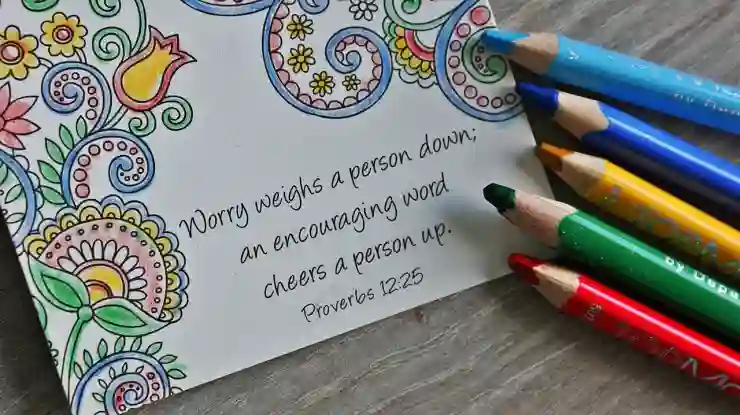 Worry weighs a person down;
an encouraging word
cheers a person up.
Proverbs 12:25
by